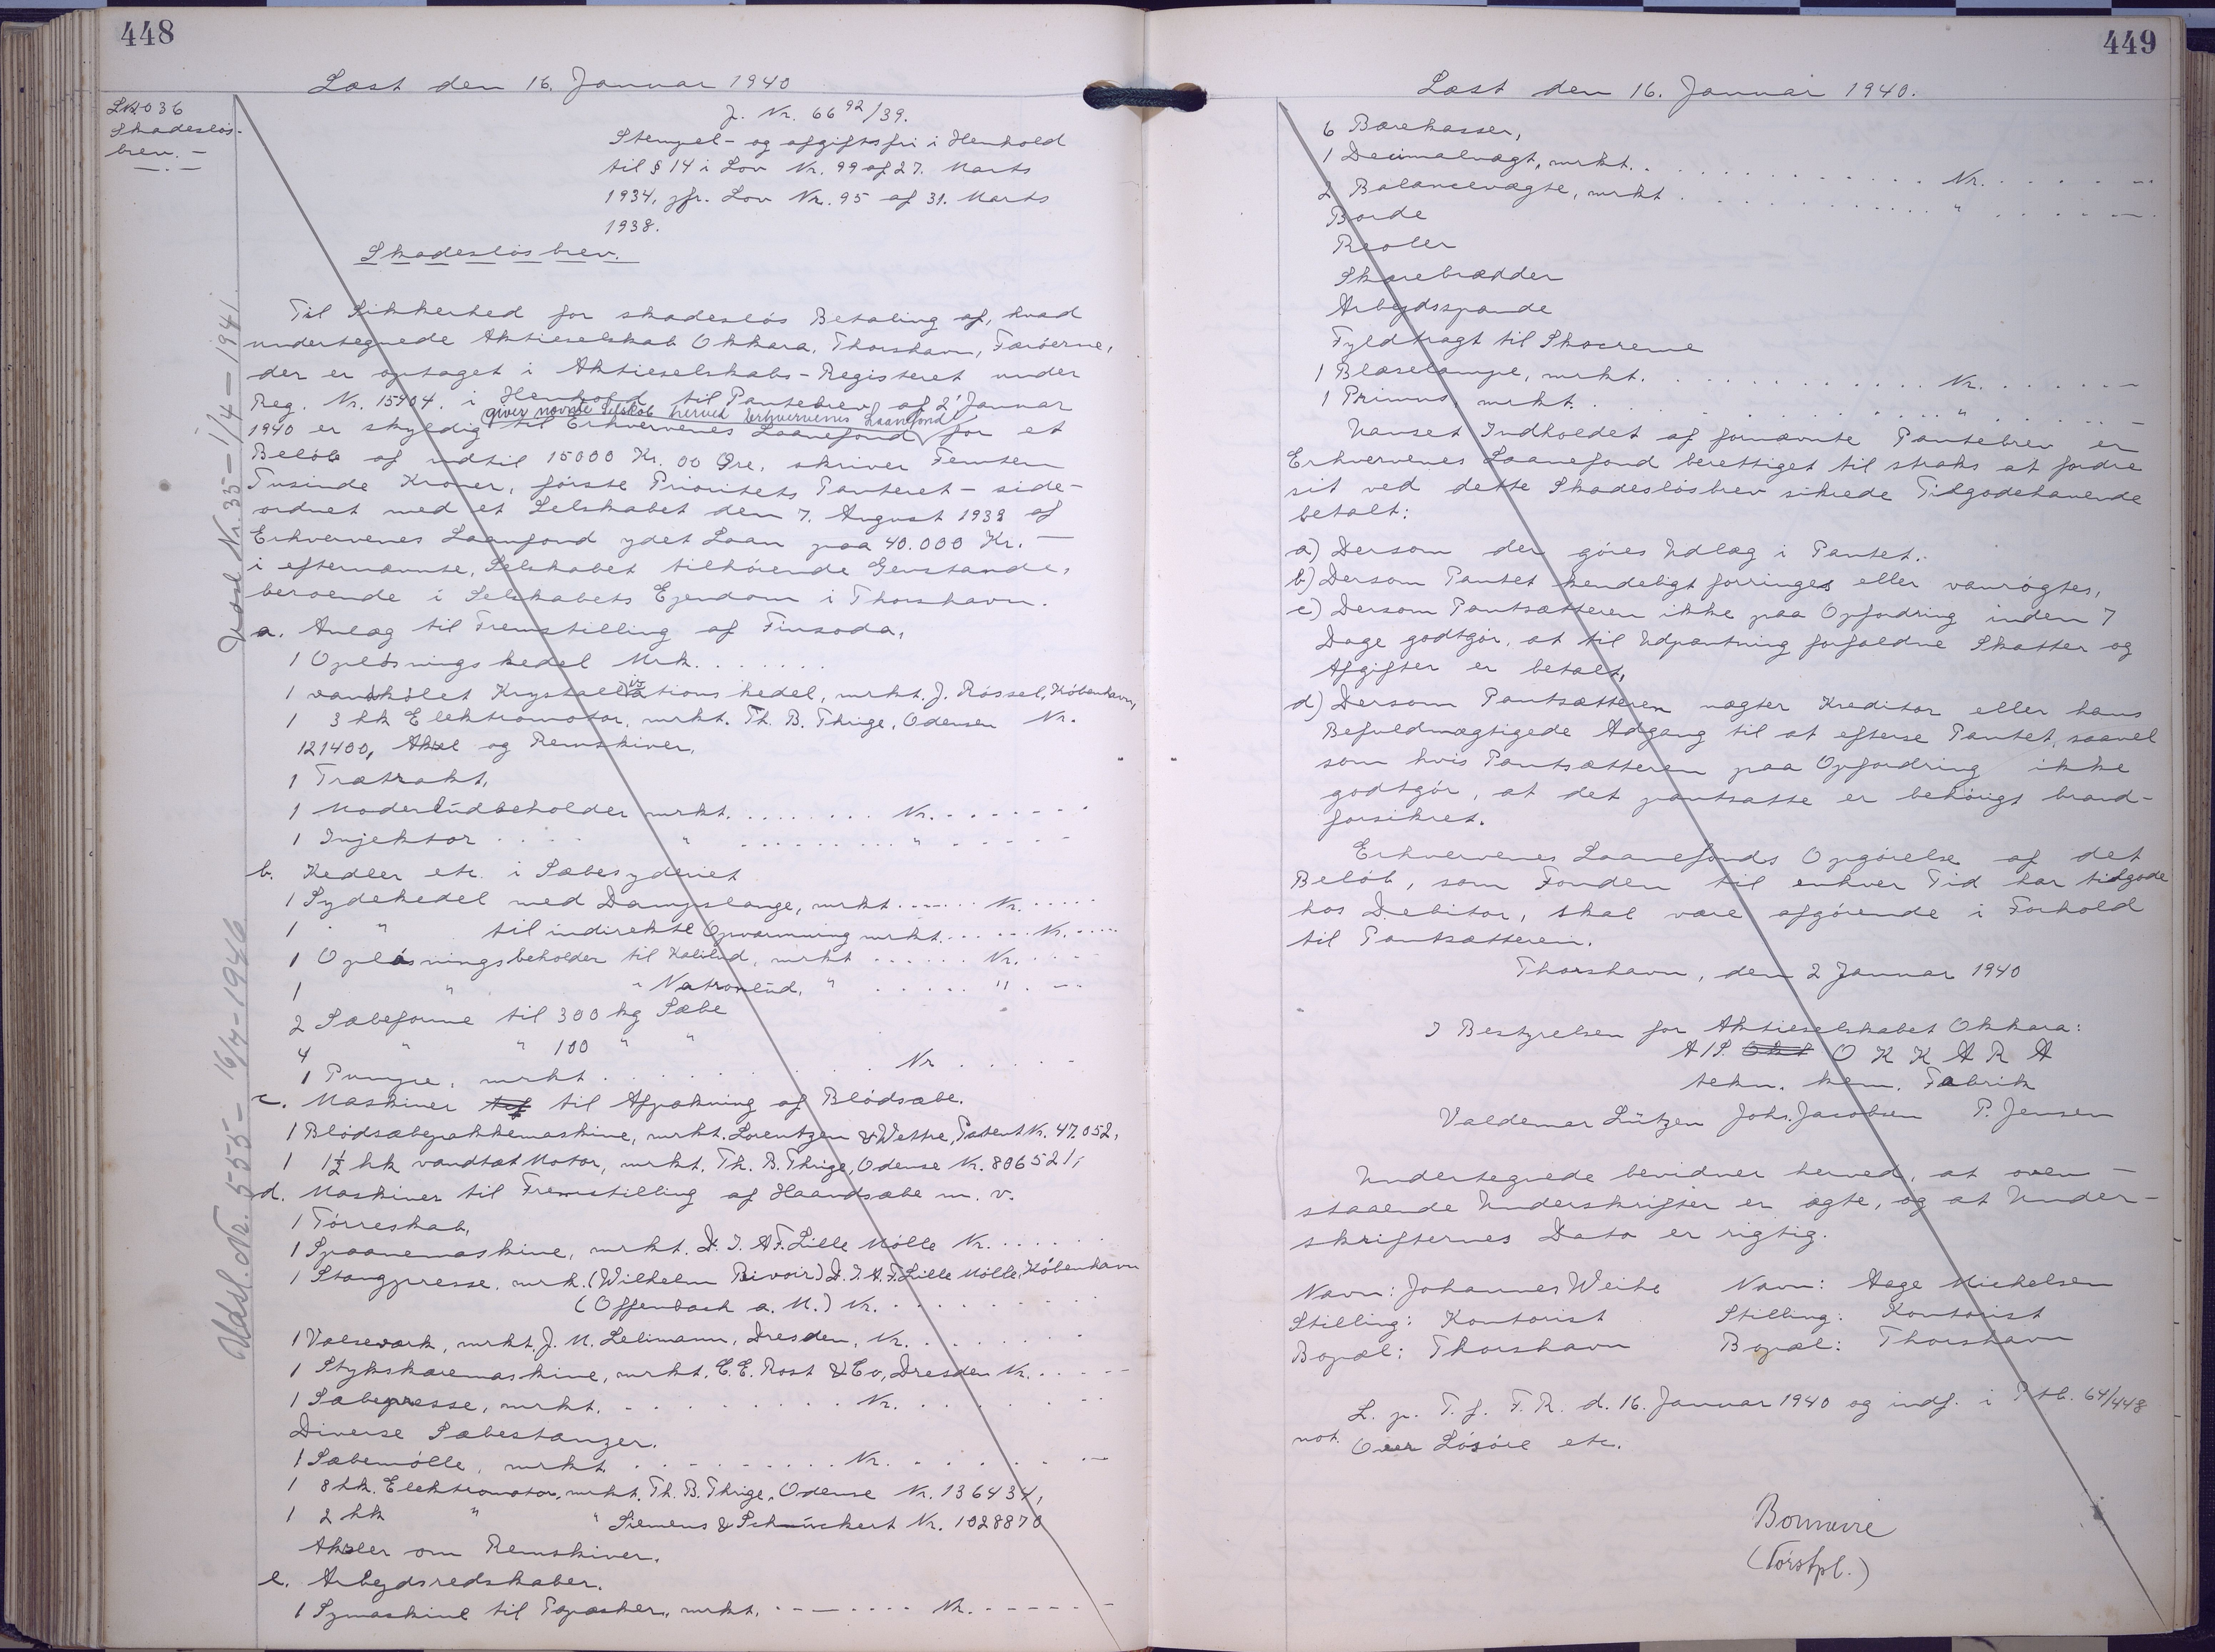 448
Læst den 16. Januar 1940
Skadeslös-
brev. -
J. Nr. 66 92/39.
Stempel- og afgiftsfri i Henhold
til § 14 i Lov Nr. 99 af 27. Marts
1934, jfr. Lov Nr. 95 af 31. Marts
1938.
Skadeslösbrev.
Til Sikkerhed for skadeslös Betaling af, hvad
undertegnede Aktieselskab Okkara, Thorshavn, Færöerne,
der er optaget i Aktieselskabs-Registeret under
Reg. Nr. 15904. i Henhold til Pantebrev af 2' Januar
giver nævnte Selskab herved Erhvervenes Laanefond
1940 er skyldig til Erhvervenes Laanefond for et
Beløb af indtil 15000 Kr. 00 Øre, skriver Femten
Tusinde Kroner, förste Prioritets Panteret - side-
ordnet med et Selskabet den 7. August 1939 af
Erhvervenes Laanfond ydet Laan paa 40.000 Kr. -
i efternævnte, Selskabet tilhörende Genstande,
beroende i Selskabets Ejendom i Thorshavn.
a. Anlæg til Fremstilling af Finsoda,
1 Oplösningskedel Mrk. . . . . . .
1 vandkölet Krystallisationskedel, mrkt. J. Rössel, København,
1 3 hk Elektromotor, mrkt. Th. B. Thrige, Odense Nr.
121400, Aksel og Remskiver.
1 Trætrakt,
1 Moderludbeholder mrkt. . . . . . . . . Nr. . . . . . .
1 Injektor . . . . " . . . . . . . . . " . . . .
b. Kedler etc. i Sæbesyderiet
1 Sydekedel med Dampslange, mrkt. . . . . . Nr. . . . . .
1 " " til indirekte Opvarmning mrkt. . . . . . Nr. . . . . .
1 Oplösningsbeholder til Kalilud, mrkt . . . . . . Nr. . . . .
1 " " Natronlud, " . . . . . " . - -
2 Sæbeforme til 300 kg Sæbe
4 " " 100 " "
1 Pumpe, mrkt . . . . . . . . . Nr . . . .
c. Maskiner til Afpakning af Blödsæbe.
1 Blödsæbepakkemaskine, mrkt. Lorentzen & Wettre, Patent Nr. 47.052,
1 1½ hk vandtæt Motor, mrkt. Th. B. Thrige, Odense Nr. 806521,
d. Maskiner til Fremstilling af Haandsæbe m. v.
1 Törreskab,
1 Spaanemaskine, mrkt. D. I. A F. Lille Mölle Nr. . . . . .
1 Stangpresse. mrk. (Wilhelm Rivoir) D. I. A. F. Lille Mölle, København
(Offenbach a. M.) Nr. . . . . . . . . .
1 Valseværk, mrkt. J. M. Lehmann, Dresden, Nr. . . . . . .
1 Stykskæremaskine, mrkt. C. E. Rost & Co, Dresden Nr. . . . . .
1 Sæbepresse, mrkt. . . . . . . . . Nr. . . . . . .
Diverse Sæbestanzer.
1 Sæbemölle, mrkt. . . . . . . . . Nr. . . . . . .
1 8 hk. Elektromotor, mrkt. Th. B. Thrige, Odense Nr. 136434,
1 2 hk " " Siemens & Schuckert Nr. 1028870
Aksler om Remskiver.
e. Arbejdsredskaber.
1 Symaskine til Papæsker, mrkt. . . . . . . Nr. . . . . . .
Udsl. Nr. 555 - 16/7 - 1946
Nr. 35 - 1/4 - 1941.
449
Læst den 16. Januar 1940.
6 Bærekasser,
1 Decimalvægt, mrkt. . . . . . . . . . . . . Nr. . . . . . .
2 Balancevægte, mrkt . . . . . . . . . . . . " . . . . . .
Borde
Reoler
Skærebrædder
Arbejdsspande
Fyldtragt til Skocreme
1 Blæselampe, mrkt. . . . . . . . . . . . Nr. . . . . . .
1 Primus, mrkt. . . . . . . . . . . . " . . . . . .
Uanset Indholdet af fornævnte Pantebrev er
Erhvervenes Laanefond berettiget til straks at fordre
sit ved dette Skadeslösbrev sikrede Tilgodehavende
betalt:
a) Dersom der göres Udlæg i Pantet.
b) Dersom Pantet kendeligt forringes eller vanrögtes,
c) Dersom Pantsætteren ikke paa Opfordring inden 7
Dage godtgör, at til Udpantning forfaldne Skatter og
Afgifter er betalt,
d) Dersom Pantsætteren nægter Kreditor eller hans
Befuldmægtigede Adgang til at efterse Pantet, saavel
som hvis Pantsætteren paa Opfordring ikke
godtgör, at det pantsatte er behörigt brand-
forsikret.
Erhvervenes Laanefonds Opgörelse af det
Belöb, som Fonden til enhver Tid har tilgode
hos Debitor, skal være afgörende i Forhold
til Pantsætteren.
Thorshavn, den 2 Januar 1940
I Bestyrelsen for Aktieselskabet Okkara:
A/S. O K K A R A
tekn. kem. Fabrik
Valdemar Lützen Johs. Jacobsen P. Jensen
Undertegnede bevidner herved, at oven -
staaende Underskrifter er ægte, og at Under -
skrifternes Dato er rigtig.
Navn: Johannes Weihe Navn: Aage Michelsen
Stilling: Kontorist Stilling: Kontorist
Bopæl: Thorshavn Bopæl: Thorshavn
L. p. T. f. F. R. d. 16. Januar 1940 og indf. i Ptb. 64/448
not. Over Lösöre etc.